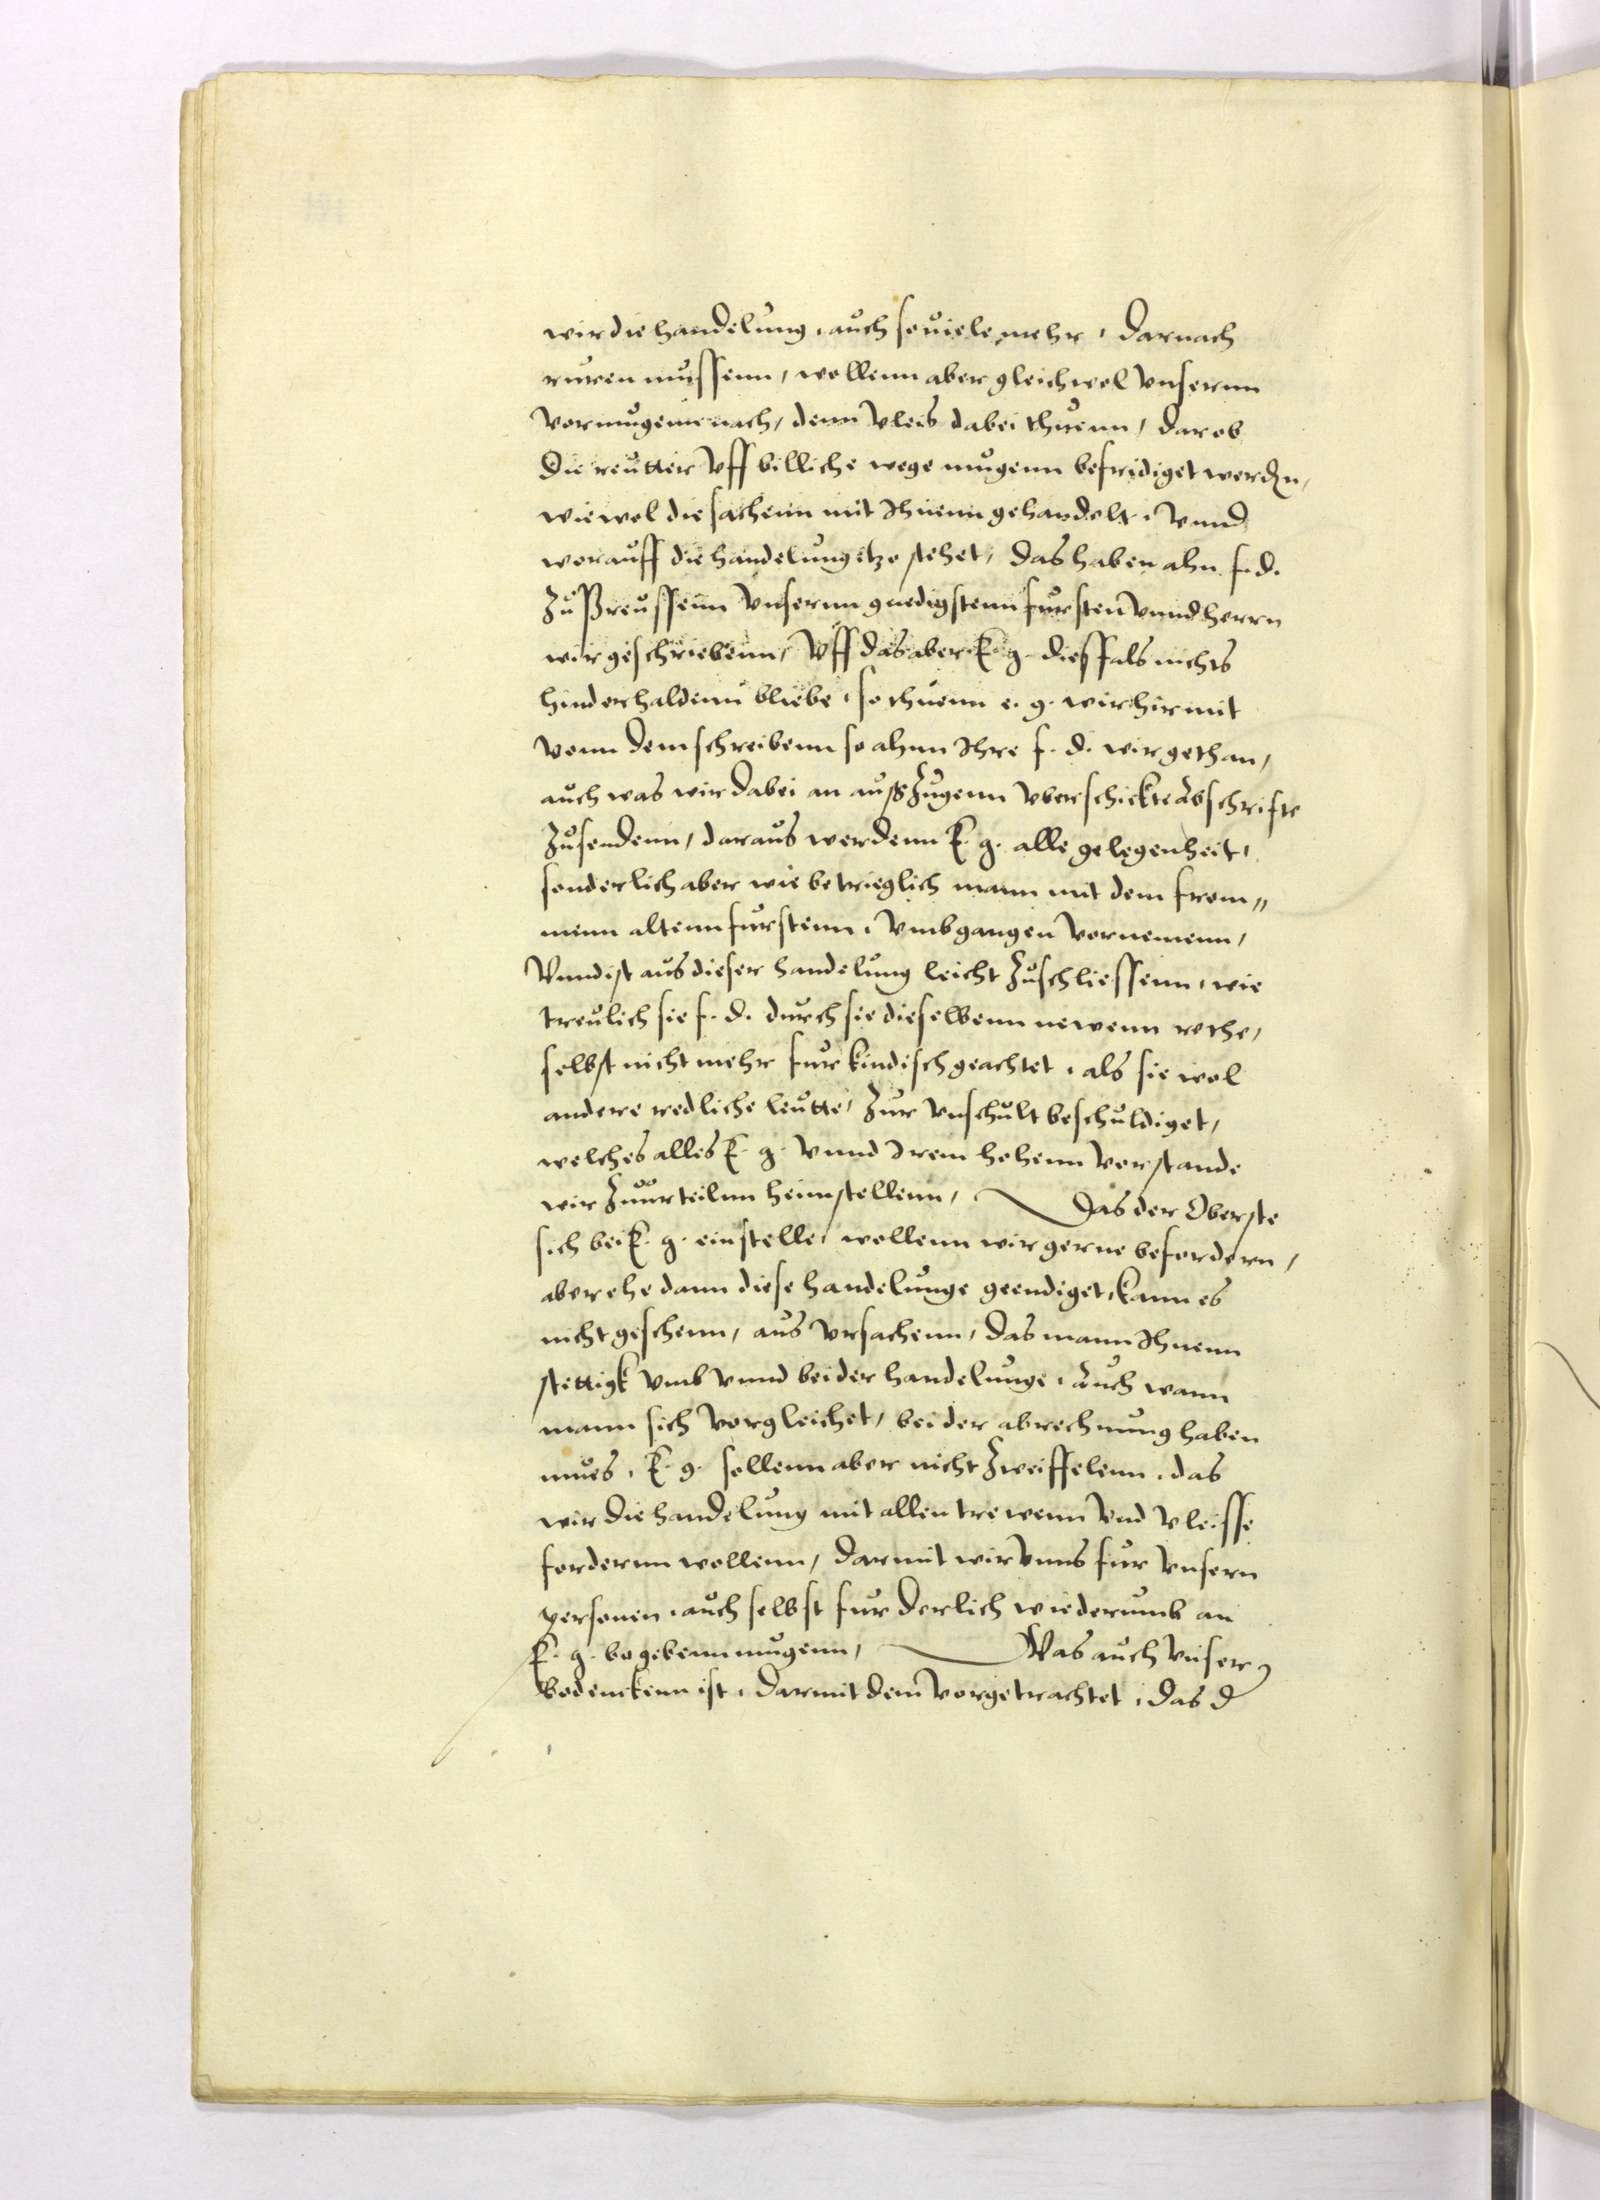 wir die handelung, auch so viele mehr, darnach
rueren mussenn, wollenn aber gleichwol vnsernn
vermugenn nach, denn vleis dabei thuenn, dar ob
die reutter vff billiche wege mugenn befridiget werdn,
wie wol die sachenn mit Ihnenn gehandelt, vnnd
worauff die handelung itzo stehet, das haben ahn f. d.
Zu Preussenn vnsernn gnedigstenn furstenn vnnd herrn
wir geschriebenn, Vff das aber E. g. diesfals nichts
hinderhaldenn bliebe, so thuenn e. g. wir hirmit
vonn dem schreibenn so ahnn Ihre f. d. wir gethan,
auch was wir dabei an auszugenn vberschickt Abschrifte
Zusendenn, daraus werdenn E. g. alle gelegenheit,
sonderlich aber wie betrieglich mann mit dem from„
menn altenn furstenn, vmbgangen vornemenn,
Vnnd ist aus dieser handelung leicht Zuschliessenn, wie
treulich sie f. d. durch sie dieselbenn newenn rethe,
selbst nicht mehr fur kindisch geachtet, als sie wol
andere redliche leutte, Zur vnschult beschuldiget,
welches alles E. g. vnnd Irem hohenn verstande
wir Zu urteilnn heimstellenn, Das der Oberste
sich bei E. g. einstelle, wollenn wir gerne befordern,
aber ehe dann diese handelunge geendiget, kann es
nicht geschenn, aus vrsachenn, das mann Ihnenn
stettigk vmb vnnd bei der handelunge, Auch wann
mann sich vorgleichet, bei der abrechnung haben
mues, E. g. sollenn aber nicht Zweiffelenn, das
wir die handelung mit allen trewenn vnd vleisse
fordernn wollenn, darmit wir vnns fur vnsern
personen, auch selbst furderlich wiederumb an
E. g. begebenn mugenn, Was auch vnser
bedenckenn ist, darmit dem vorgetrachtet, das d